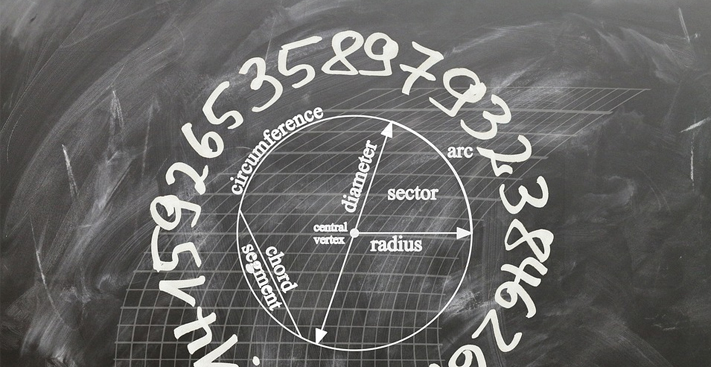 1415926535897932384626
circumference
arc
diameter
sector
central
vertex
radius
chord
segment